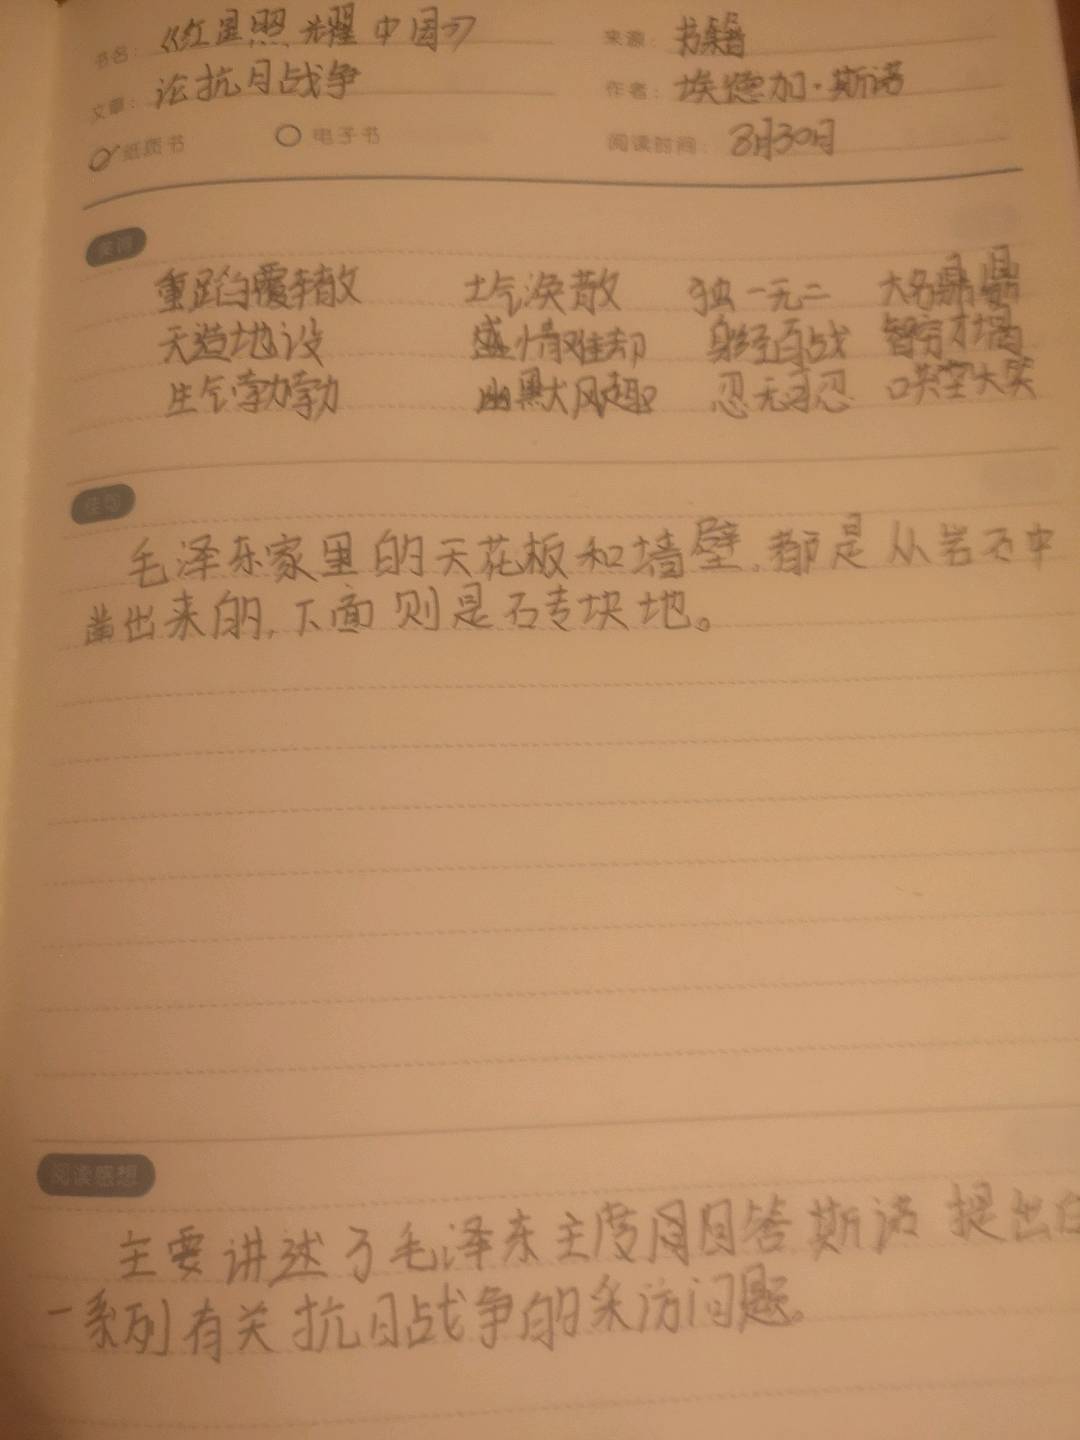 书名：《红星照耀中国》 来源：书籍
文章：论抗日战争 作者：埃德加·斯诺
纸质书 电子书 阅读时间：8月30日
美词
重蹈覆辙 士气涣散 独一无二 大名鼎鼎
天造地设 盛情难却 身经百战 智穷才竭
生气勃勃 幽默风趣 忍无可忍 哄堂大笑
佳句
毛泽东家里的天花板和墙壁，都是从岩石中
凿出来的，下面则是砖块地。
阅读感想
主要讲述了毛泽东主席回答斯诺提出的
一系列有关抗日战争的采访问题。